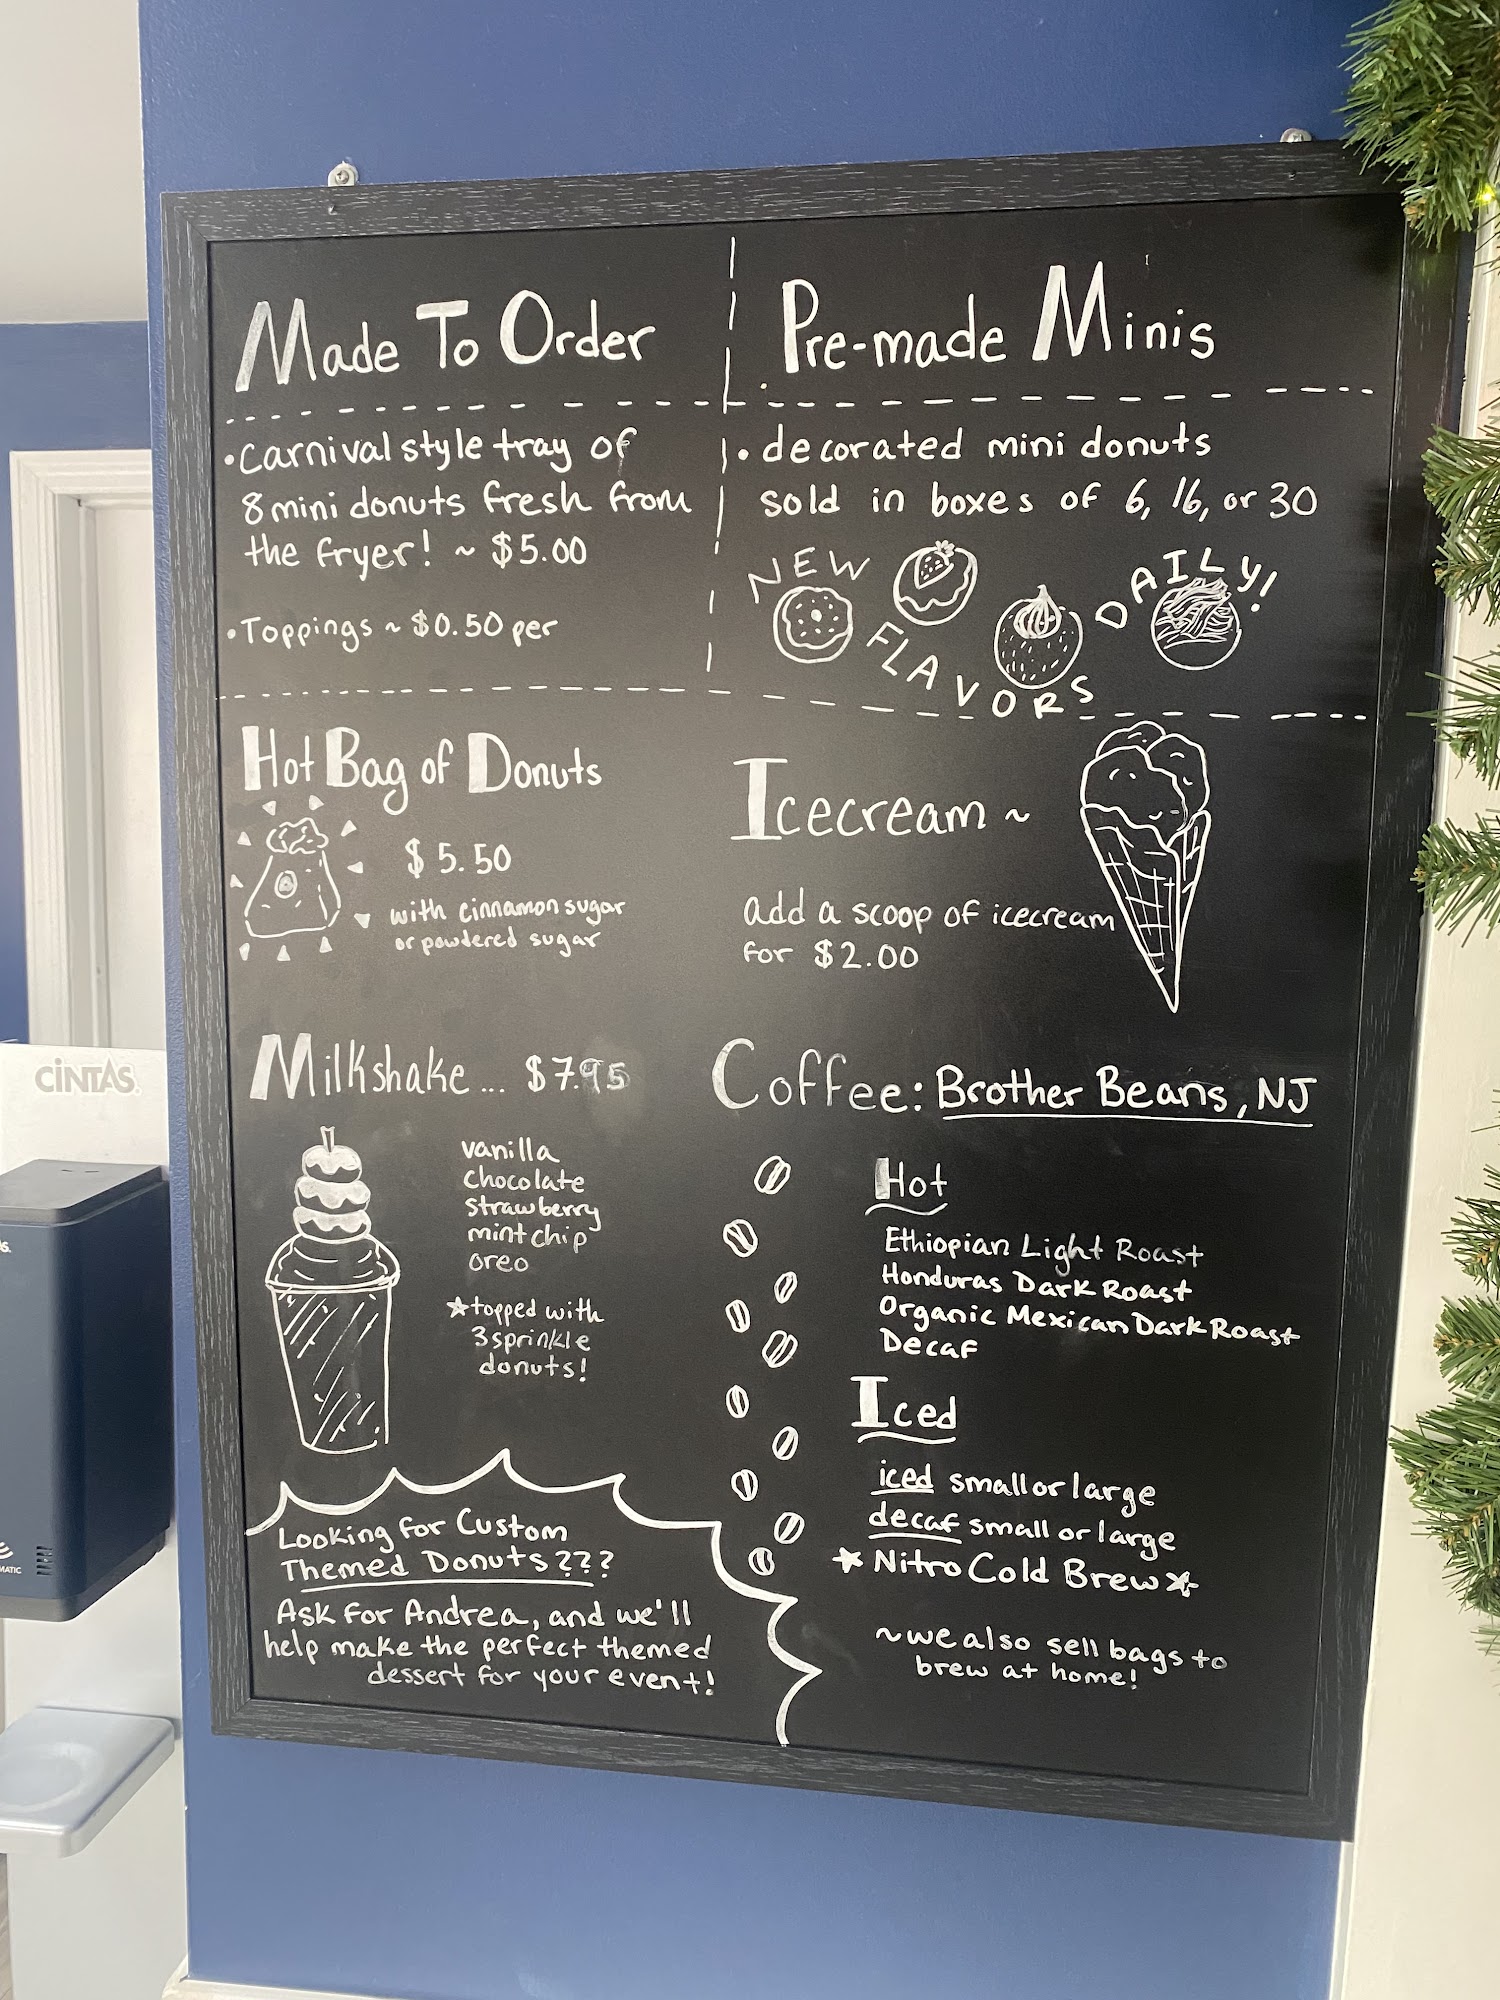 Made To Order
• Carnival style tray of
8 mini donuts fresh from
the fryer! ~ $5.00
• Toppings ~ $0.50 per
Pre-made Minis
• decorated mini donuts
sold in boxes of 6, 16, or 30
NEW FLAVORS DAILY!
Hot Bag of Donuts
$5.50
with cinnamon sugar
or powdered sugar
Icecream ~
add a scoop of icecream
for $2.00
Milkshake... $7.95
vanilla
chocolate
strawberry
mint chip
oreo
★ topped with
3 sprinkle
donuts!
Coffee: Brother Beans, NJ
Hot
Ethiopian Light Roast
Honduras Dark Roast
Organic Mexican Dark Roast
Decaf
Iced
iced small or large
decaf small or large
★ Nitro Cold Brew ★
~ we also sell bags to
brew at home!
Looking for Custom
Themed Donuts???
Ask for Andrea, and we'll
help make the perfect themed
dessert for your event!
CINTAS
MATIC